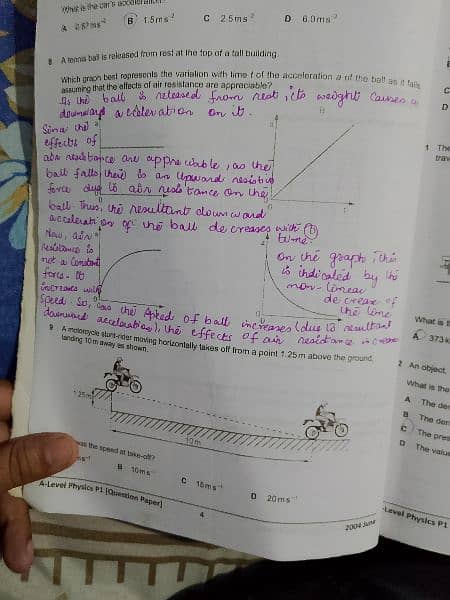 What is the car's acceleration?
A 0.67 ms⁻² B 1.5 ms⁻² C 2.5 ms⁻² D 6.0 ms⁻²
8 A tennis ball is released from rest at the top of a tall building.
Which graph best represents the variation with time t of the acceleration a of the ball as it falls,
assuming that the effects of air resistance are appreciable?
As the ball is released from rest, its weight causes a
downward acceleration on it.
Since the
effects of
air resistance are appreciable, as the
ball falls, there is an upward resistive
force due to air resistance on the
ball. Thus, the resultant downward
acceleration of the ball decreases with
time
Now, air
resistance is
not a constant
force. It
increases with
speed. So, as the speed of ball increases (due to resultant
downward acceleration), the effects of air resistance increase
On the graph, this
is indicated by the
non-linear
decrease of
the line
B
D
a
a
0
0
t
9 A motorcycle stunt-rider moving horizontally takes off from a point 1.25 m above the ground,
landing 10 m away as shown.
1.25m
10m
was the speed at take-off?
ms⁻¹ B 10 ms⁻¹ C 15 ms⁻¹ D 20 ms⁻¹
A-Level Physics P1 [Question Paper]
4
2004 June
1 The
trav
What is t
A 373 k
2 An object
What is the
A The der
B The den
C The pres
D The value
-Level Physics P1